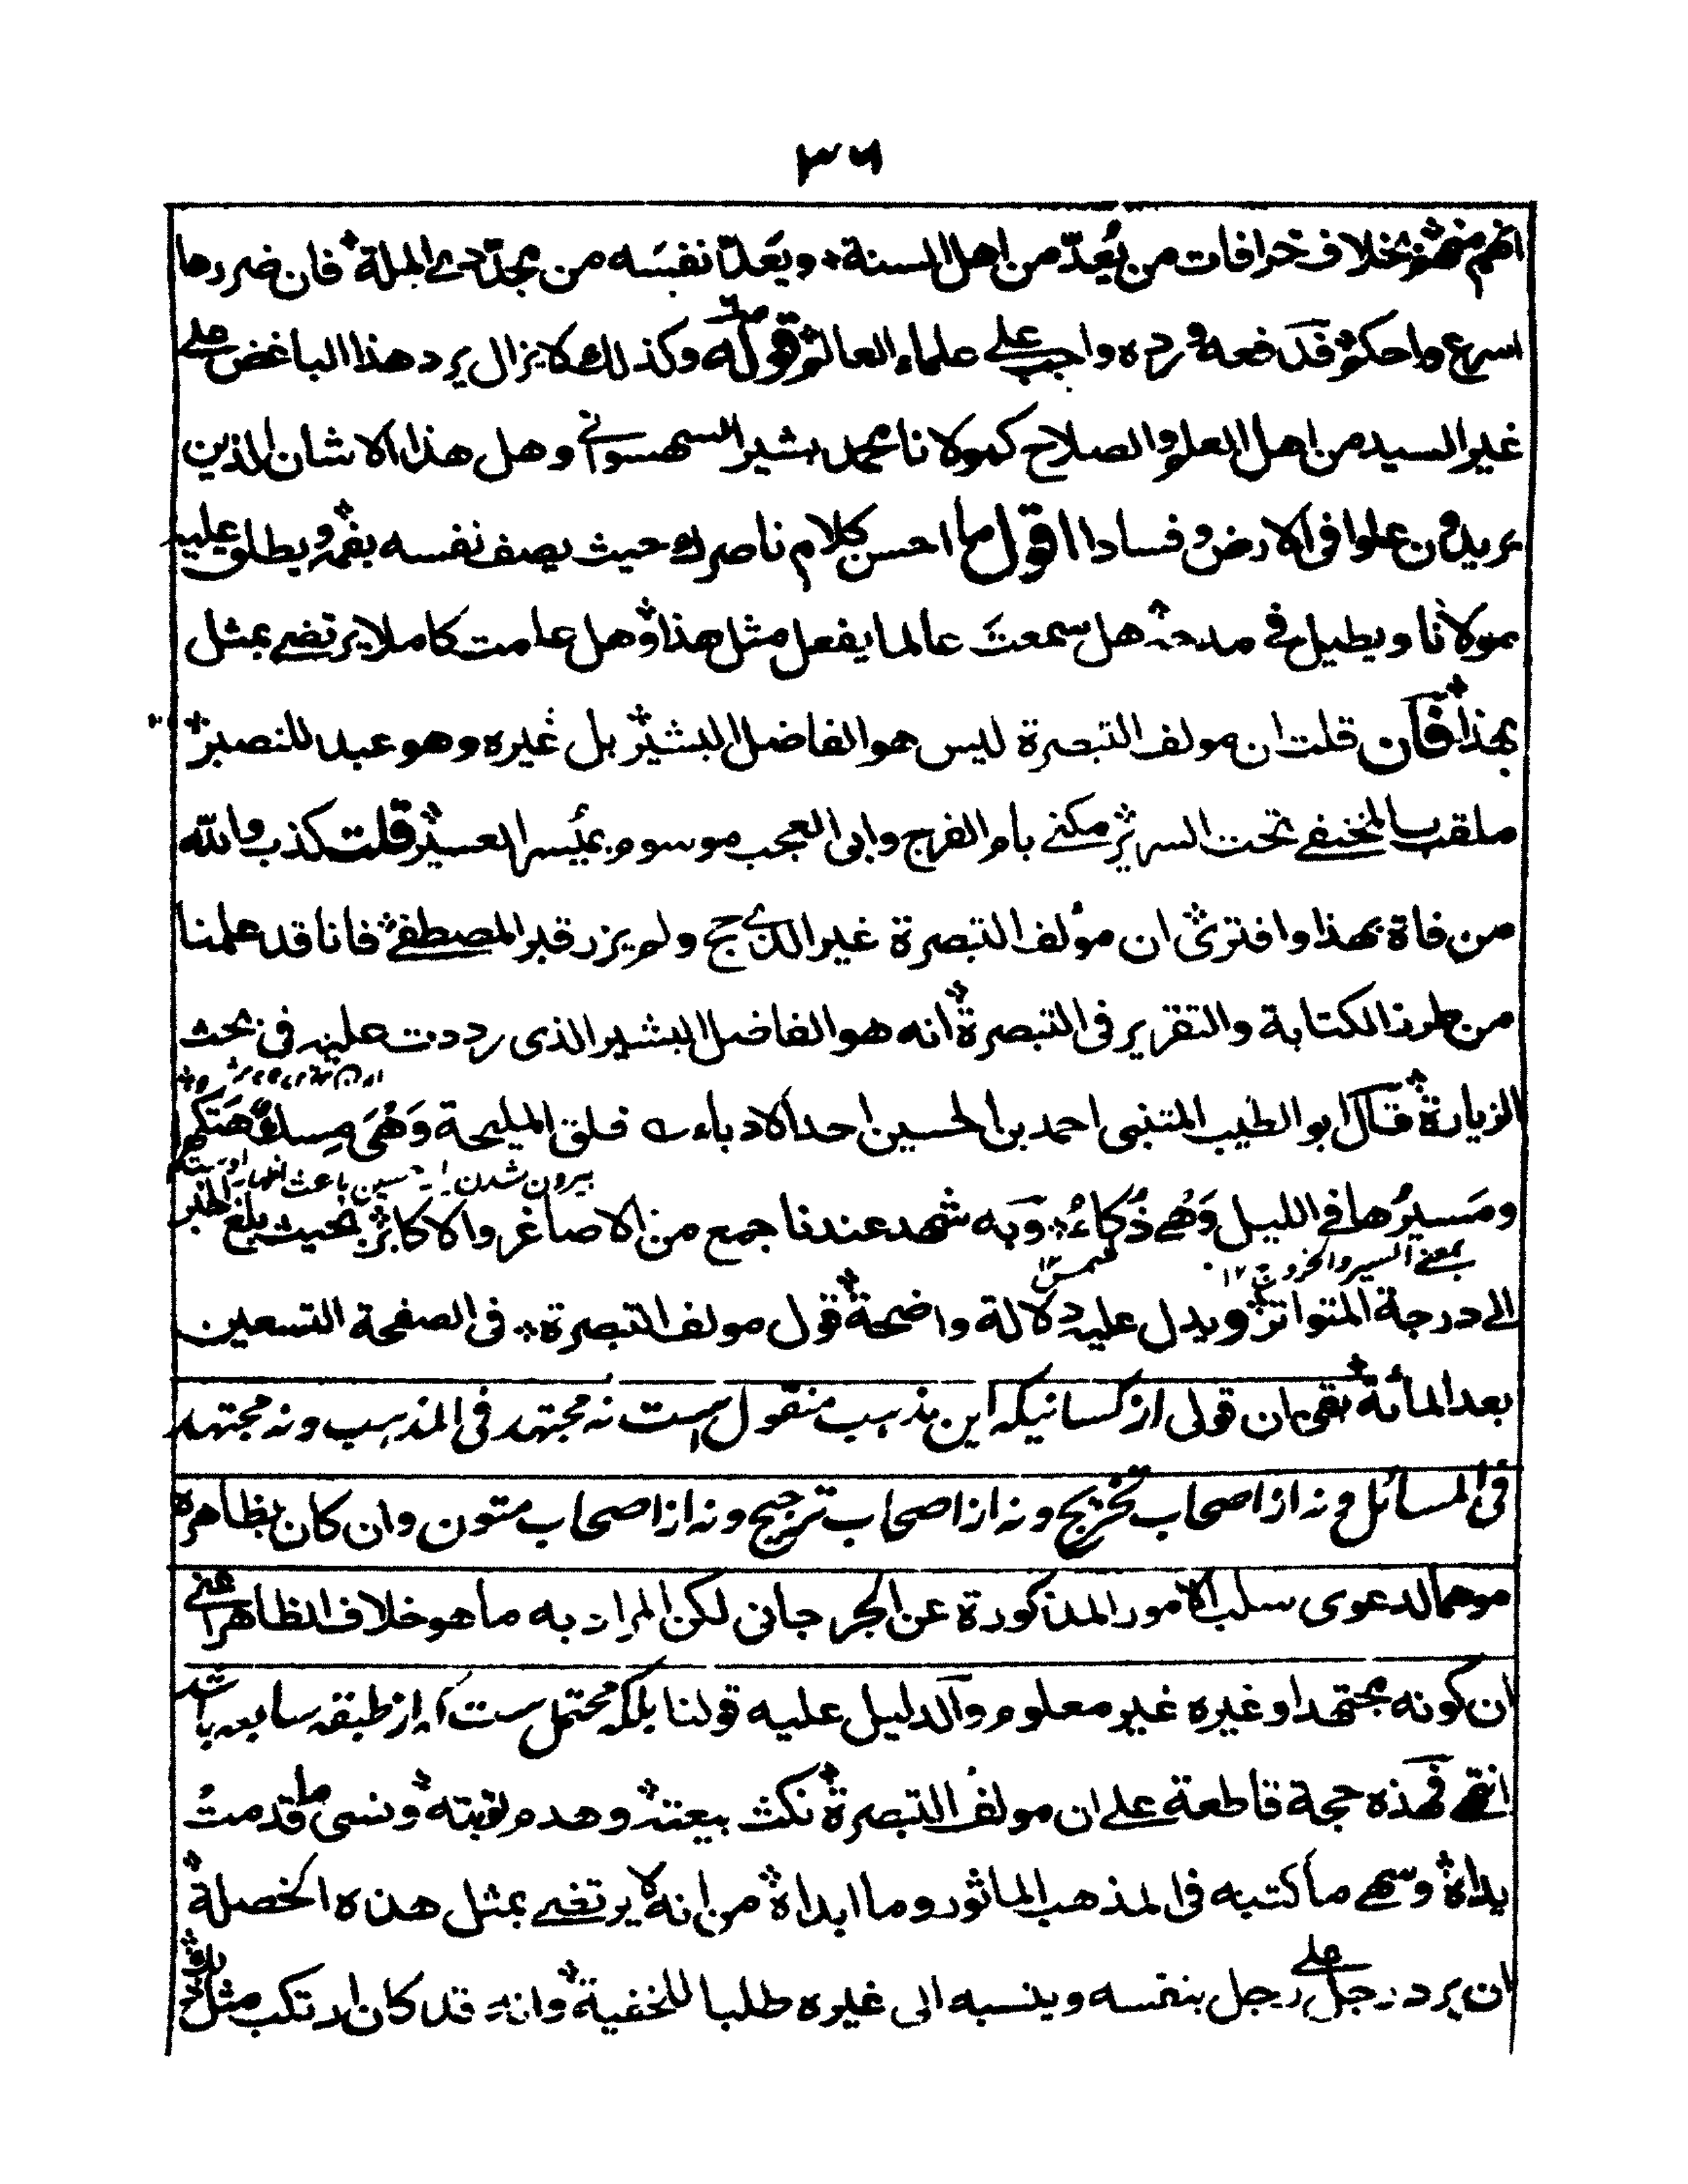 ٣٦
انهم منهم بخلاف خرافات من يُعدّ من اهل السنة ويَعدّ نفسَه من مجدّدى الملة فان ضررها
اسرع واحكم فدفعه ورده واجب على علماء العالم قوله وكذلك لا يزال يرد هذا الباغض على
غير السيد من اهل العلم والصلاح كمولانا محمد بشير السهسوانى وهل هذا الا شان الذين
يريدون علوا فى الارض وفسادا اقول ما احسن كلام ناصرك حيث يصف نفسه بفمه ويطلق عليه
مولانا ويطيل فى مدحه هل سمعتَ عالما يفعل مثل هذا وهل علمت كاملا يرتضى بمثل
بهذا فان قلت ان مولف التبصرة ليس هو الفاضل البشير بل غيره وهو عبد النصير
ملقب بالمختفى تحت السرير مكنى بام الفرج وابى العجب موسوم بميُسر العسير قلت كذب والله
من فاة بهذا وافترى ان مؤلف التبصرة غير الذى حج ولم يزر قبر المصطفى فانا قد علمنا
من طرز الكتابة والتقرير فى التبصرة انه هو الفاضل البشير الذى رددت عليه فى بحث
الزيارة قال ابو الطيب المتنبى احمد بن الحسين احد الادباء قلق المليحة وَهْىَ مِسك هَتكها
بيرون شدن
ومَسيرُها فى الليل وَهْى ذُكاءُ وبه شهد عندنا جمع من الاصاغر والاكابر بحيث بلغ الخبر
بمعنى السير والخروج ١٢ شمس
الى درجة المتواتر ويدل عليه دلالة واضحة قول مولف التبصرة فى الصفحة التسعين
بعد المائة بقى ان قولى ازكسانيكه اين مذہب منقول ست نہ مجتہد فى المذہب ونہ مجتہد
فى المسائل ونہ از اصحاب تخريج ونہ از اصحاب ترجيح ونہ از اصحاب متون وان كان بظاهره
موهما لدعوى سلب الامور المذكورة عن الجرجانى لكن المراد به ما هو خلاف الظاهر اعنى
ان كونه مجتهدا وغيره غير معلوم والدليل عليه قولنا بلكہ محتمل ست كہ از طبقہ سابعہ باشد
انتهى فهذه حجة قاطعة على ان مولف التبصرة نكث بيعته وهدم توبته ونسى ما قدمتُ
يداه وسهى ما كتبه فى المذهب الماثور وما ابداه من انه لا يرتضى بمثل هذه الخصلة
ان يرد رجل على رجل بنفسه وينسبه الى غيره طلبا للخفية وانه قد كان ارتكب مثل